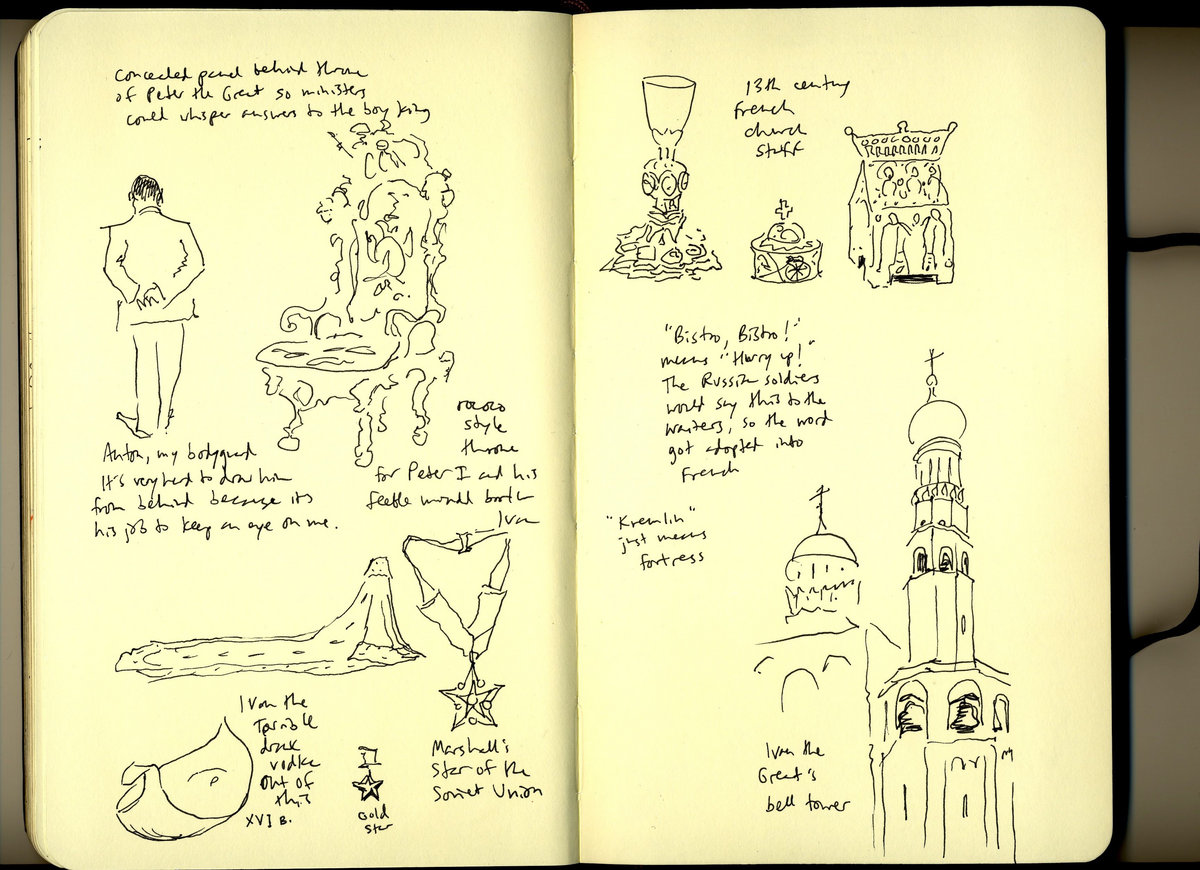 Concealed panel behind throne
of Peter the Great so ministers
could whisper answers to the boy king
Anton, my bodyguard
It's very hard to draw him
from behind because it's
his job to keep an eye on me.
rococo
style
throne
for Peter I and his
feeble minded brother
Ivan
Ivan the
Terrible
drank
vodka
out of
this
XVI B.
Gold
Star
Marshall's
Star of the
Soviet Union
13th century
French
church
stuff
"Bistro, Bistro!"
means "Hurry up!"
The Russian soldiers
would say this to the
waiters, so the word
got adopted into
French
"Kremlin"
just means
fortress
Ivan the
Great's
bell tower